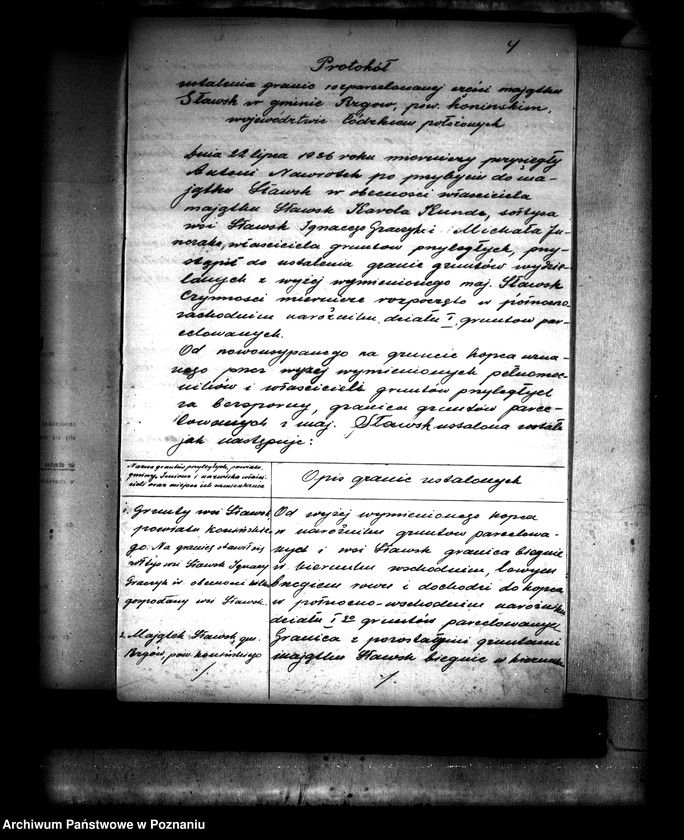 4
Protokół
ustalenia granic rozparcelowanej części majątku
Sławsk w gminie Rzgów, pow. konińskim,
województwie Łódzkiem położonych
Dnia 22 lipca 1936 roku mierniczy przysięgły
Antoni Nawrotek po przybyciu do ma-
jątku Sławsk w obecności właściciela
majątku Sławsk Karola Kunde, sołtysa
wsi Sławsk Ignacego Graczyk i Michała
właściciela gruntów przyległych, przy-
stąpił do ustalenia granic gruntów wydzie-
lanych z wyżej wymienionego maj. Sławsk
Czynności miernicze rozpoczęto w północno
zachodnim narożniku działu I gruntów par-
celowanych.
Od nowousypanego na gruncie kopca uzna-
nego przez wyżej wymienionych pełnomoc-
ników i właścicieli gruntów przyległych
za bezsporny, granica gruntów parce-
lowanych z maj. Sławsk ustalona została
jak następuje:
Nazwa gruntów przyległych, powiatu,
gminy, Imiona i nazwiska właści-
cieli oraz miejsce ich zamieszkania
Opis granic ustalonych
1. Grunty wsi Sławsk
powiatu konińskie-
go. Na granicy stawił się
sołtys wsi Sławsk Ignacy
Graczyk w obecności
gospodarzy wsi Sławsk.
2. Majątek Sławsk, gm.
Rzgów, pow. konińskiego
./.
Od wyżej wymienionego kopca
w narożniku gruntów parcelowa-
nych i wsi Sławsk granica biegnie
w kierunku wschodnim, lewym
brzegiem rowu i dochodzi do kopca
w północno-wschodnim narożniku
działu I go gruntów parcelowanych
Granica z pozostałymi gruntami
majątku Sławsk biegnie w kierunku
./.
Archiwum Państwowe w Poznaniu